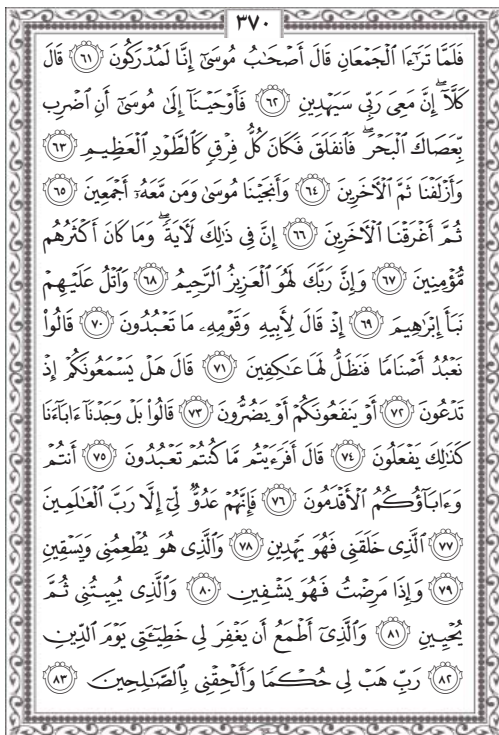 ٣٧٠
فَلَمَّا تَرَٰٓءَا ٱلۡجَمۡعَانِ قَالَ أَصۡحَٰبُ مُوسَىٰٓ إِنَّا لَمُدۡرَكُونَ ٦١ قَالَ
كَلَّآۖ إِنَّ مَعِيَ رَبِّي سَيَهۡدِينِ ٦٢ فَأَوۡحَيۡنَآ إِلَىٰ مُوسَىٰٓ أَنِ ٱضۡرِب
بِّعَصَاكَ ٱلۡبَحۡرَۖ فَٱنفَلَقَ فَكَانَ كُلُّ فِرۡقٖ كَٱلطَّوۡدِ ٱلۡعَظِيمِ ٦٣
وَأَزۡلَفۡنَا ثَمَّ ٱلۡأٓخَرِينَ ٦٤ وَأَنجَيۡنَا مُوسَىٰ وَمَن مَّعَهُۥٓ أَجۡمَعِينَ ٦٥
ثُمَّ أَغۡرَقۡنَا ٱلۡأٓخَرِينَ ٦٦ إِنَّ فِي ذَٰلِكَ لَأٓيَةٗۖ وَمَا كَانَ أَكۡثَرُهُم
مُّؤۡمِنِينَ ٦٧ وَإِنَّ رَبَّكَ لَهُوَ ٱلۡعَزِيزُ ٱلرَّحِيمُ ٦٨ وَٱتۡلُ عَلَيۡهِمۡ
نَبَأَ إِبۡرَٰهِيمَ ٦٩ إِذۡ قَالَ لِأَبِيهِ وَقَوۡمِهِۦ مَا تَعۡبُدُونَ ٧٠ قَالُواْ
نَعۡبُدُ أَصۡنَامٗا فَنَظَلُّ لَهَا عَٰكِفِينَ ٧١ قَالَ هَلۡ يَسۡمَعُونَكُمۡ إِذۡ
تَدۡعُونَ ٧٢ أَوۡ يَنفَعُونَكُمۡ أَوۡ يَضُرُّونَ ٧٣ قَالُواْ بَلۡ وَجَدۡنَآ ءَابَآءَنَا
كَذَٰلِكَ يَفۡعَلُونَ ٧٤ قَالَ أَفَرَءَيۡتُم مَّا كُنتُمۡ تَعۡبُدُونَ ٧٥ أَنتُمۡ
وَءَابَآؤُكُمُ ٱلۡأَقۡدَمُونَ ٧٦ فَإِنَّهُمۡ عَدُوّٞ لِّيٓ إِلَّا رَبَّ ٱلۡعَٰلَمِينَ
٧٧ ٱلَّذِي خَلَقَنِي فَهُوَ يَهۡدِينِ ٧٨ وَٱلَّذِي هُوَ يُطۡعِمُنِي وَيَسۡقِينِ
٧٩ وَإِذَا مَرِضۡتُ فَهُوَ يَشۡفِينِ ٨٠ وَٱلَّذِي يُمِيتُنِي ثُمَّ
يُحۡيِينِ ٨١ وَٱلَّذِيٓ أَطۡمَعُ أَن يَغۡفِرَ لِي خَطِيٓـَٔتِي يَوۡمَ ٱلدِّينِ
٨٢ رَبِّ هَبۡ لِي حُكۡمٗا وَأَلۡحِقۡنِي بِٱلصَّٰلِحِينَ ٨٣